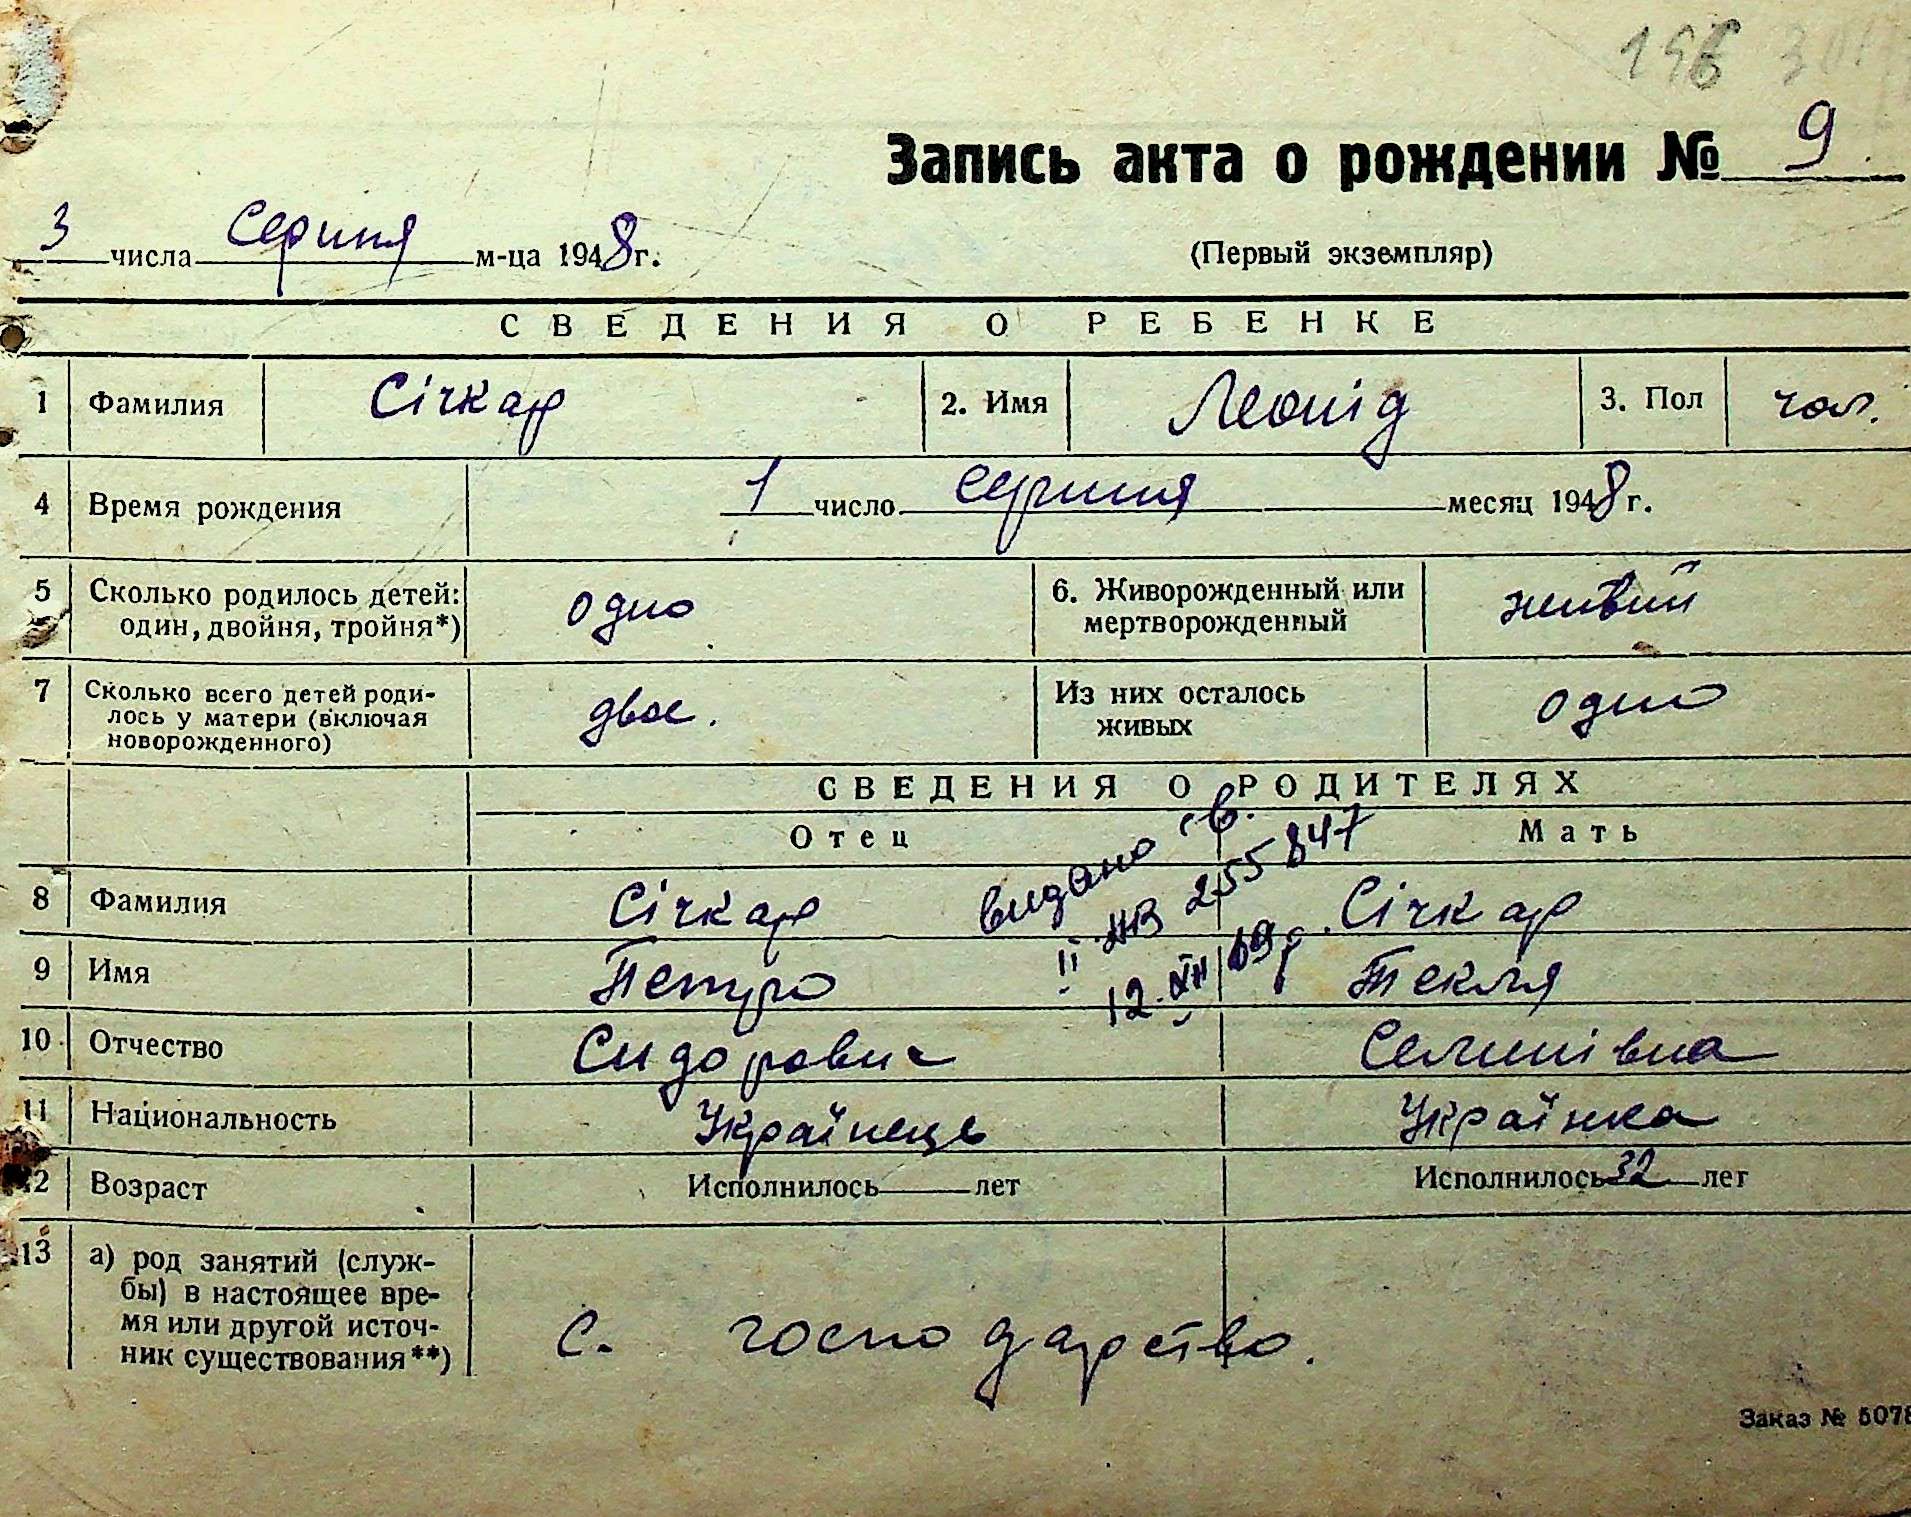 196
Запись акта о рождении № 9
3 числа Серпня м-ца 1948 г.
(Первый экземпляр)
СВЕДЕНИЯ О РЕБЕНКЕ
1 Фамилия Січкар 2. Имя Леонід 3. Пол чол.
4 Время рождения 1 число серпня месяц 1948 г.
5 Сколько родилось детей: один, двойня, тройня*) одно 6. Живорожденный или мертворожденный живий
7 Сколько всего детей родилось у матери (включая новорожденного) двое. Из них осталось живых одно
СВЕДЕНИЯ О РОДИТЕЛЯХ
Отец Мать
видано св.
II ЖВ 255847
12.XII 69р.
8 Фамилия Січкар Січкар
9 Имя Петро Текля
10 Отчество Сидорович Семинівна
11 Национальность Українець Українка
12 Возраст Исполнилось лет Исполнилось 32 лет
13 а) род занятий (служ-
бы) в настоящее вре-
мя или другой источ-
ник существования**)
С. господарство.
Заказ № 5078